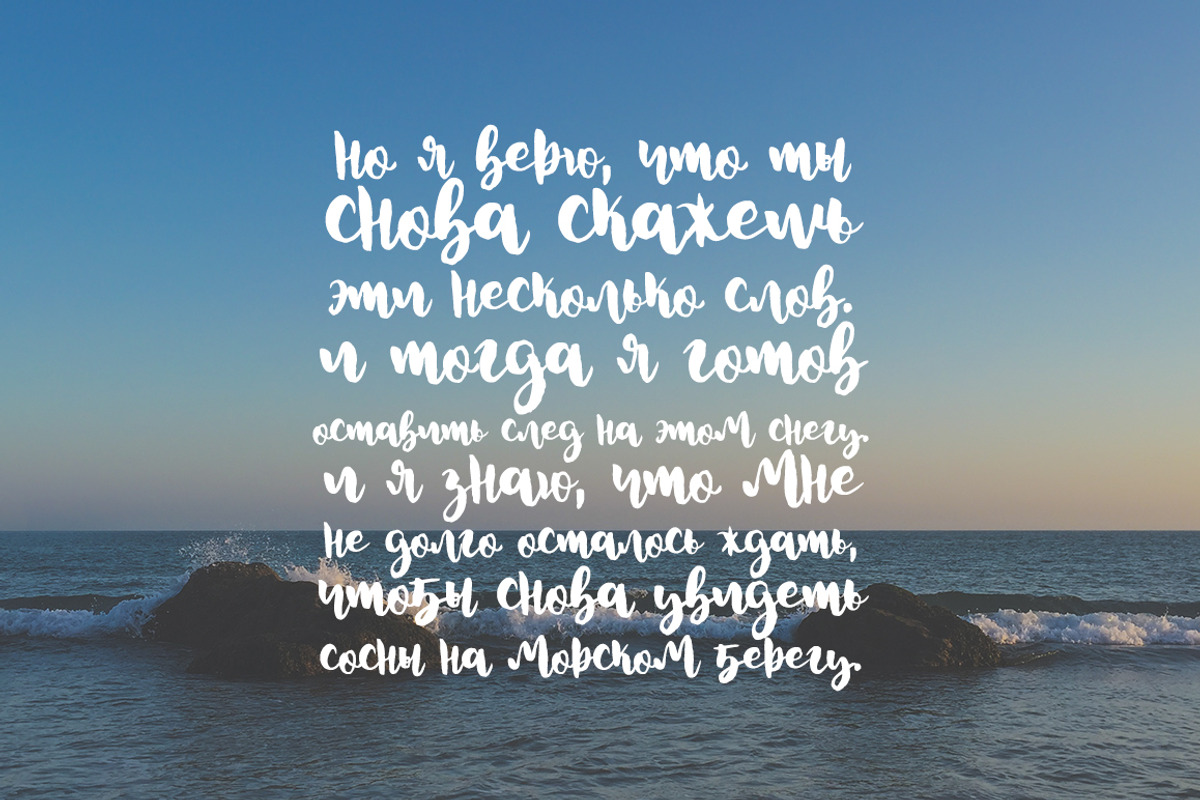 Но я верю, что ты
снова скажешь
эти несколько слов.
и тогда я готов
оставить след на этом снегу.
и я знаю, что мне
не долго осталось ждать,
чтобы снова увидеть
сосны на морском берегу.